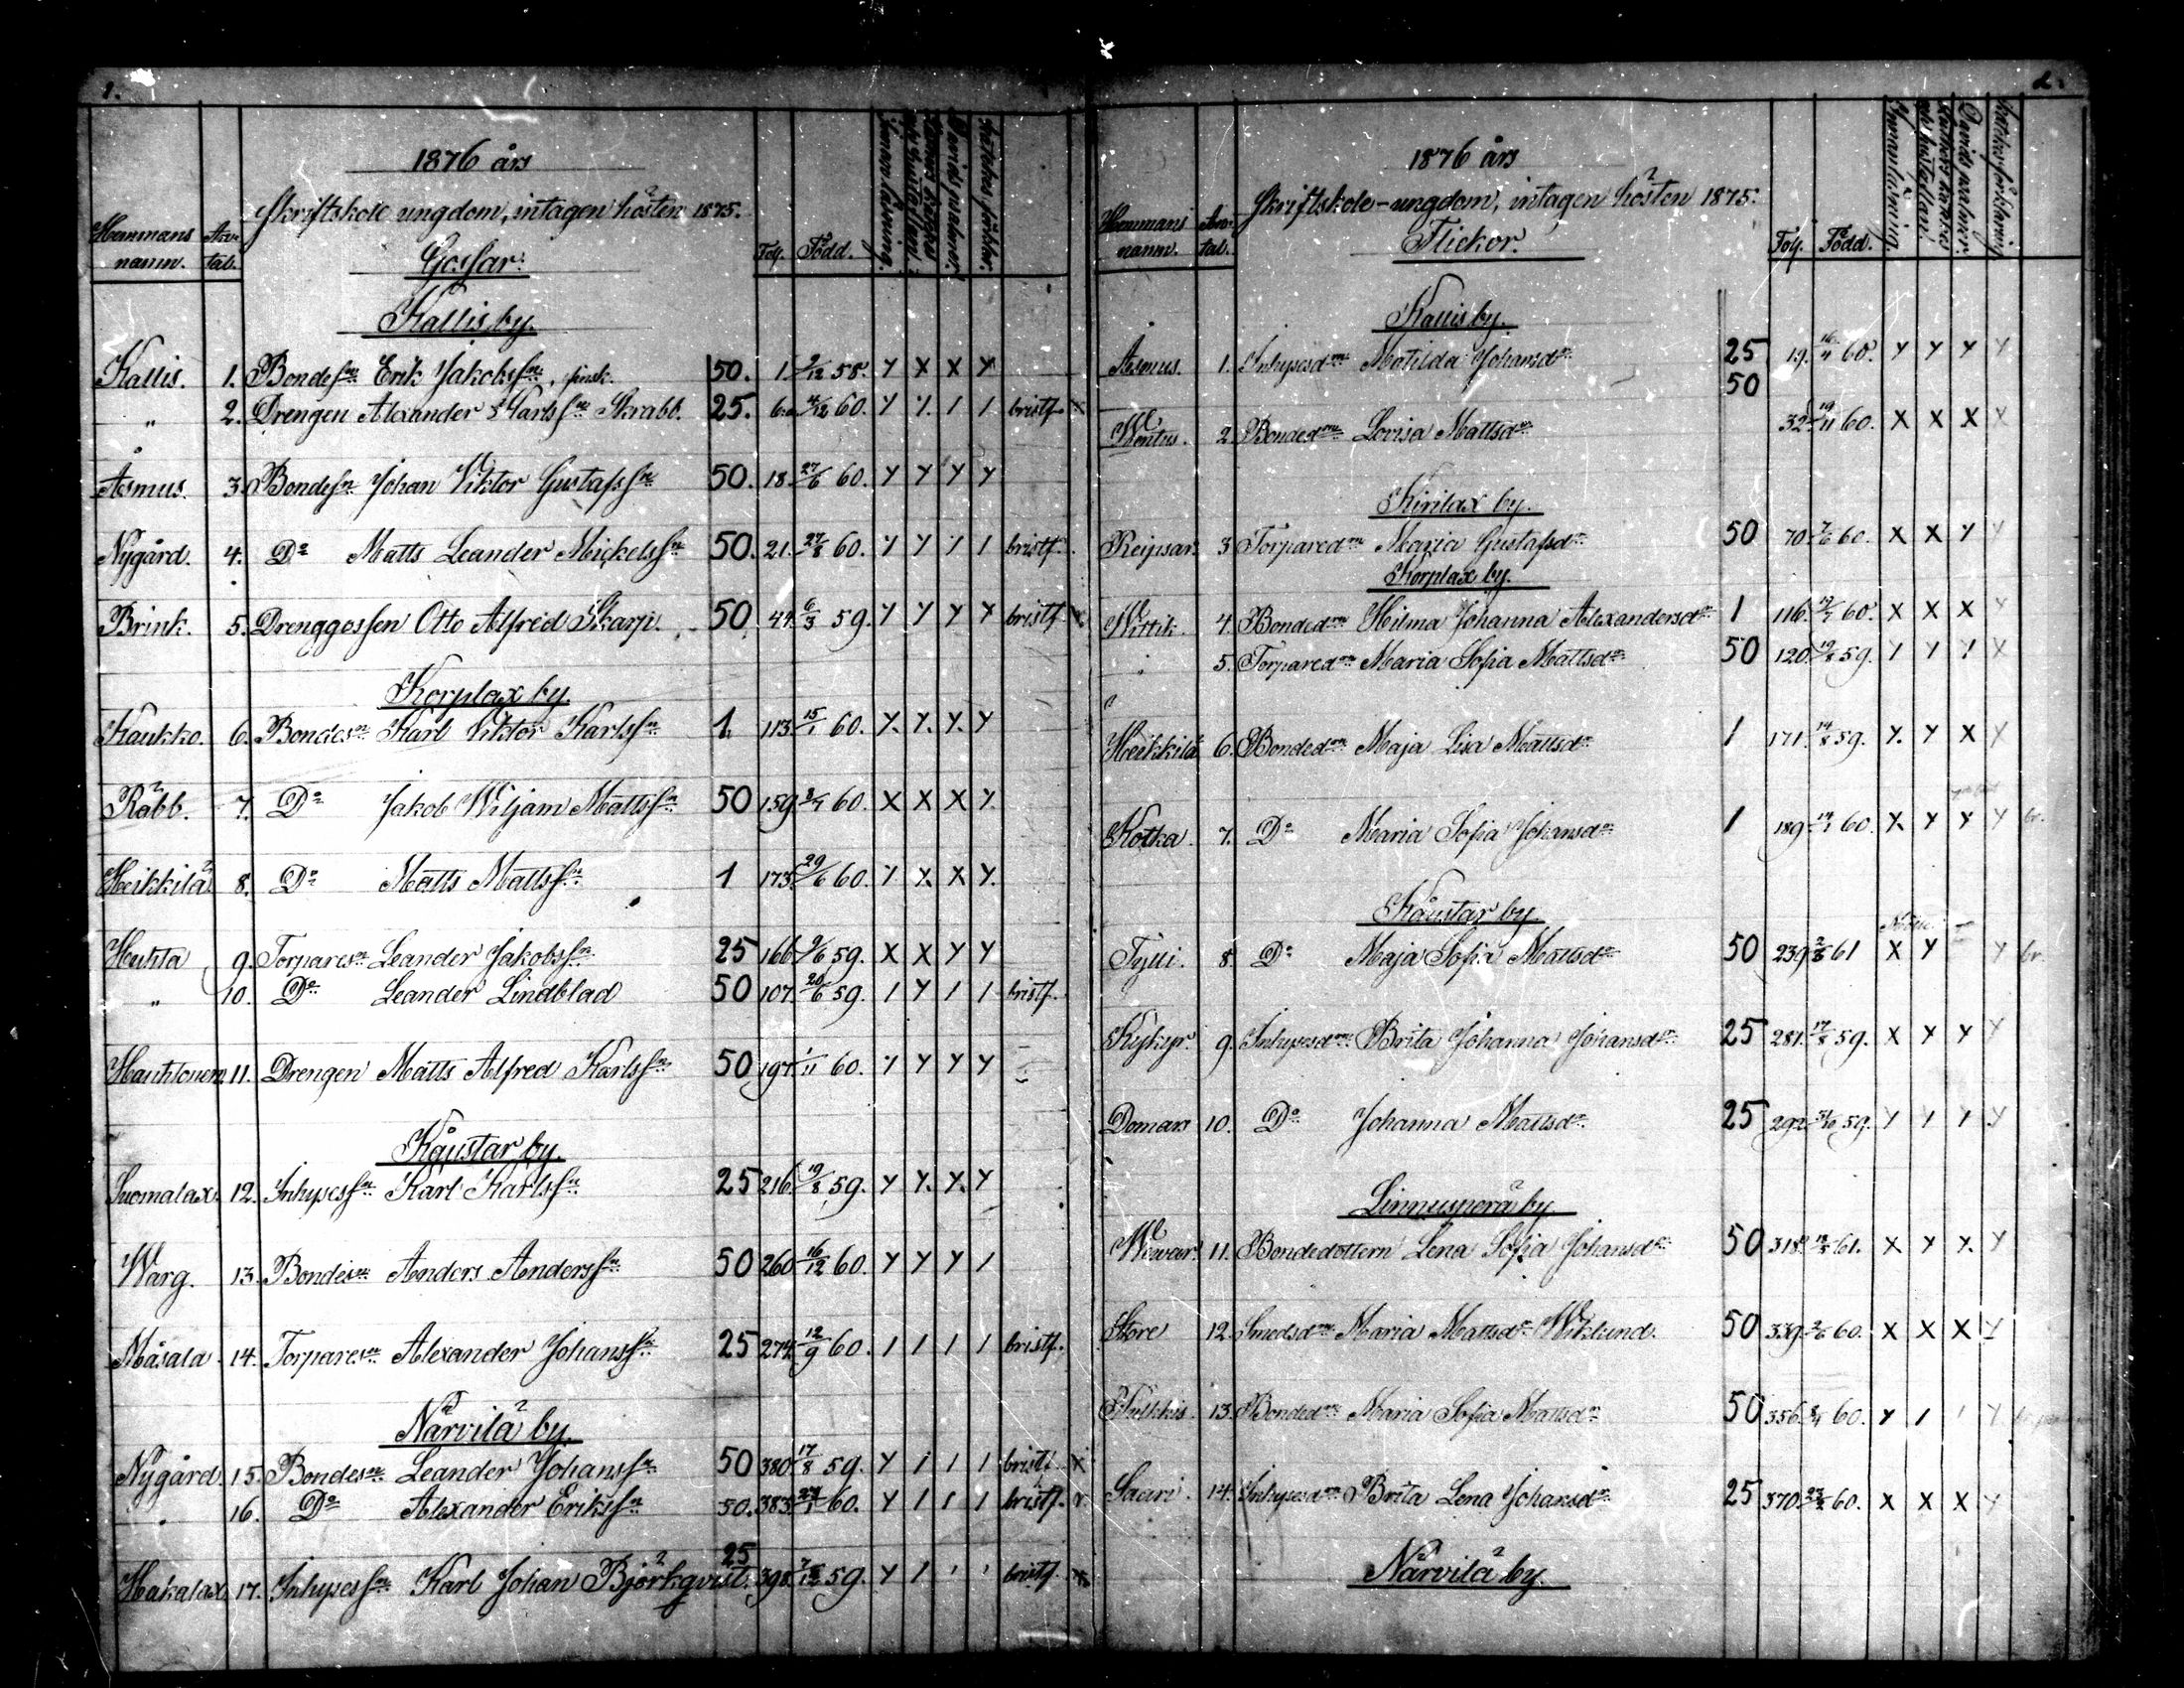 1.
1876 års
Skriftskole ungdom, intagen hösten 1875.
Gossar.
Hemmans namn. Antal. Folj. Född. Innanläsning. Davids psalmer.
Kallis by.
Kallis. 1. Bondesn Erik Jakobssn, finsk. 50. 1. 9/12 58. Y X X Y
" 2. Drengen Alexander Karlssn Skrabb. 25. 6. 4/12 60. Y Y. / / bristf.
Åsmus. 3. Bondesn Johan Viktor Gustafssn 50. 18. 27/6 60. Y Y Y Y
Nygård. 4. Do Matts Leander Mickelssn 50. 21. 27/8 60. Y Y / / bristf.
Brink. 5. Drenggossen Otto Alfred Skarp. 50 44. 6/3 59. Y Y Y Y bristf.
Korplax by.
Kaukko. 6. Bondesn Karl Viktor Karlssn 1. 113. 15/1 60. Y. Y. Y. Y
Räbb. 7. Do Jakob Wiljam Mattssn 50 159. 60. X X X Y
Heikkilä 8. Do Matts Mattssn 1 173. 29/6 60. Y Y. X Y.
Huhta 9. Torparesn Leander Jakobssn 25 166. 9/6 59. X X Y Y
" 10. Do Leander Lindblad 50 107. 20/6 59. / Y / / bristf.
11. Drengen Matts Alfred Karlssn 50 197. 1/11 60. Y Y Y Y
Kåustar by.
Suomalax. 12. Inhysessn Karl Karlssn 25 216. 19/8 59. Y Y. Y. Y
Warg. 13. Bondesn Anders Anderssn 50 260. 16/12 60. Y Y Y /
Måsala 14. Torparesn Alexander Johanssn 25 274. 12/9 60. / / / / bristf.
Närvilä by.
Nygård. 15. Bondesn Leander Johanssn 50 380. 17/8 59. Y / / / bristf.
" 16. Do Alexander Erikssn 50. 383. 60. Y / / / bristf.
Hakalax 17. Inhysessn Karl Johan Björkqvist. 25 398. 59. Y / / / bristf.
2.
1876 års
Skriftskole-ungdom, intagen hösten 1875.
Flickor.
Hemmans namn. Antal. Folj. Född. Innanläsning. Davids psalmer.
Kallis by.
Åsmus. 1. Inhysesdn Matilda Johansdn 25 19. 16/11 60. Y Y Y Y
50
Wentus. 2. Bondedn Lovisa Mattsdn 32. 19/11 60. X X X X
Kirilax by.
Reipsar. 3 Torparedn Maria Gustafsdn 50 70. 7/6 60. X X Y Y
Korplax by.
Wittik. 4. Bondedn Hilma Johanna Alexandersdn 1 116. 60. X X X Y
" 5. Torparedn Maria Sofia Mattsdn 50 120. 19/8 59. / / / X
Heikkilä 6. Bondedn Maja Lisa Mattsdn 1 171. 14/8 59. Y. Y X Y
Kotka. 7. Do Maria Sofia Johansdn 1 189. 60. X. Y Y Y br.
Kåustar by.
Tyni. 8. Do Maja Sofia Mattsdn 50 239. 61 X Y Y br.
Kykyr. 9. Inhysesdn Brita Johanna Johansdn 25 281. 17/8 59. X X Y Y
Domars 10. Do Johanna Mattsdn 25 292. 31/10 59. Y / / Y
Linnusperä by
Wiwar. 11. Bondedottern Lena Sofia Johansdn 50 318. 61. X Y Y. Y
Store 12. Smedsdn Maria Mattsdn Wiklund. 50 339. 60. X X X Y
13. Bondedn Maria Sofia Mattsdn 50 356. 60. Y / / Y
Saari. 14. Inhysesdn Brita Lena Johansdn 25 370. 60. X X X Y
Närvilä by.